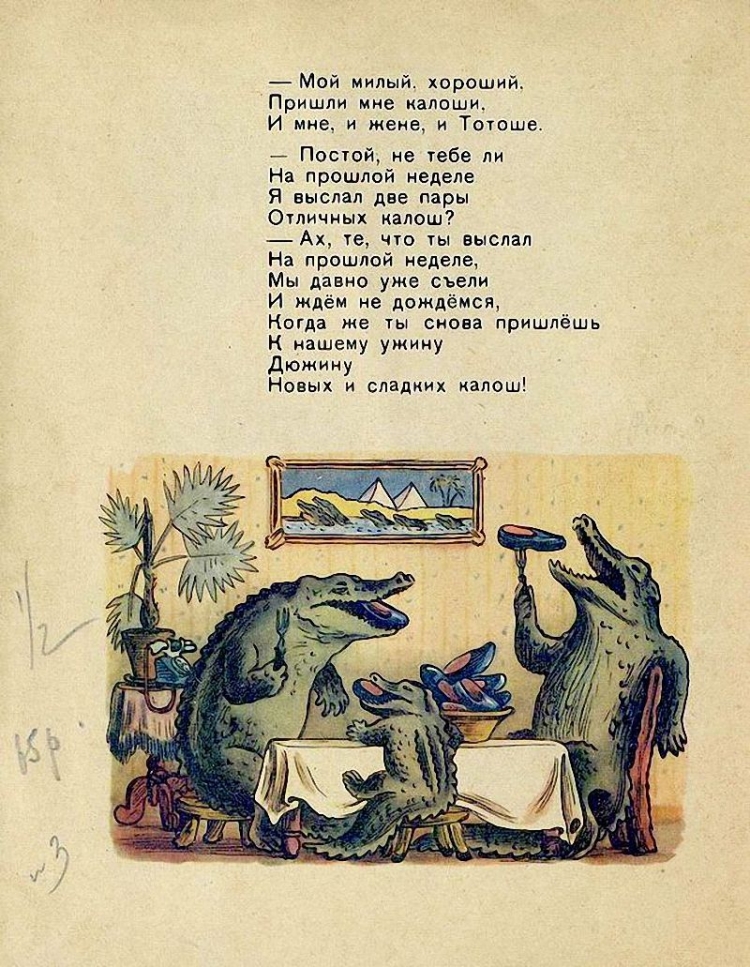 — Мой милый, хороший,
Пришли мне калоши,
И мне, и жене, и Тотоше.
— Постой, не тебе ли
На прошлой неделе
Я выслал две пары
Отличных калош?
— Ах, те, что ты выслал
На прошлой неделе,
Мы давно уже съели
И ждём не дождёмся,
Когда же ты снова пришлёшь
К нашему ужину
Дюжину
Новых и сладких калош!
1/2